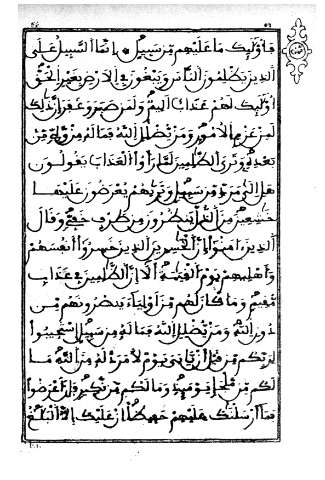 فأوليك ما عليهم من سبيل * إنما السبيل على
الذين يظلمون الناس ويبغون في الأرض بغير الحق
أوليك لهم عذاب أليم ولمن صبر وغفر إن ذلك
لمن عزم الأمور ومن يضلل الله فما له من ولي من
بعده وترى الظلمين لما رأوا العذاب يقولون
هل إلى مرد من سبيل وتريهم يعرضون عليها
خشعين من الذل ينظرون من طرف خفي وقال
الذين ءامنوا إن الخسرين الذين خسروا أنفسهم
وأهليهم يوم القيمة ألا إن الظلمين في عذاب
مقيم وما كان لهم من أولياء ينصرونهم من
دون الله ومن يضلل الله فما له من سبيل استجيبوا
لربكم من قبل أن يأتي يوم لا مرد له من الله ما
لكم من ملجإ يوميذ وما لكم من نكير فإن أعرضوا
فما أرسلنك عليهم حفيظا إن عليك إلا البلغ